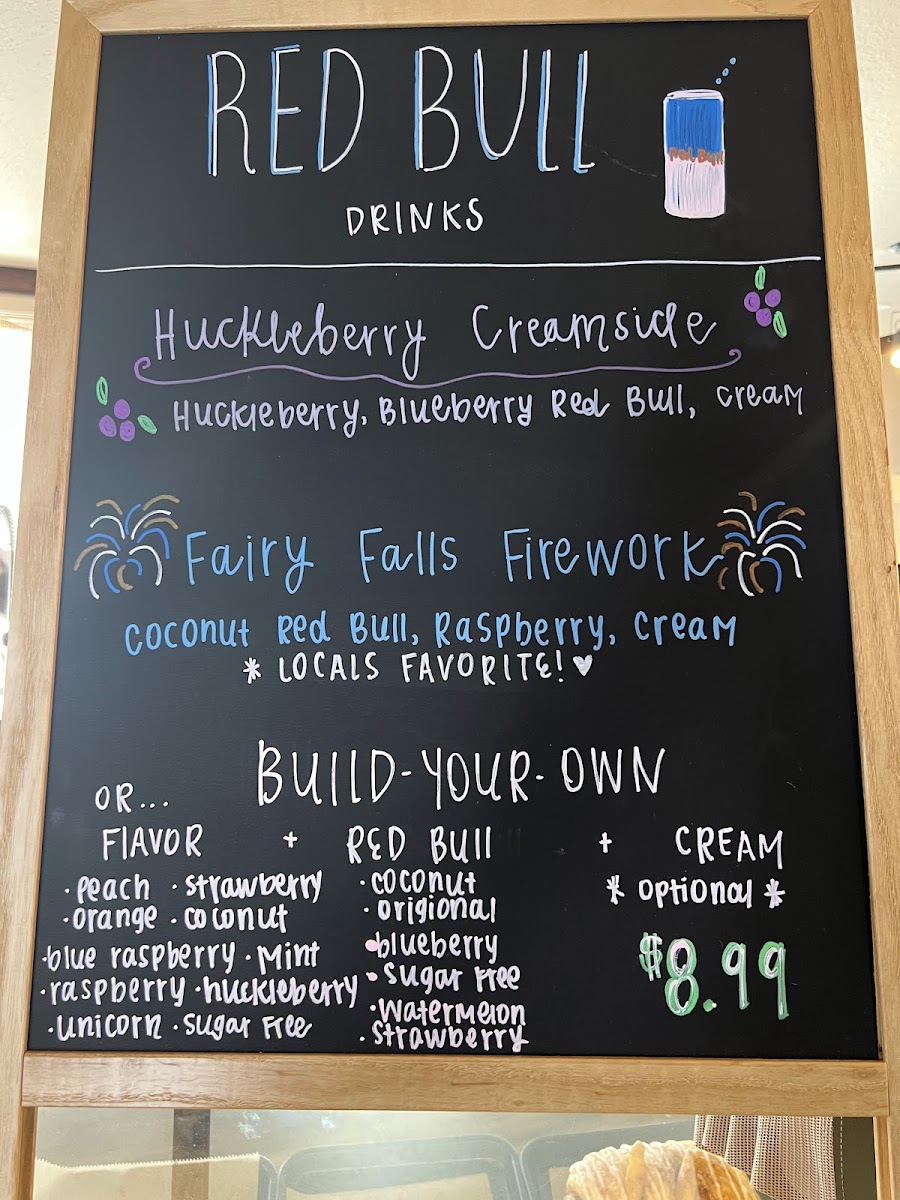 RED BULL
DRINKS
Huckleberry Creamside
Huckleberry, Blueberry Red Bull, cream
Fairy Falls Firework
Coconut Red Bull, Raspberry, Cream
* LOCALS FAVORITE! ♥
OR... BUILD-YOUR-OWN
FLAVOR + RED BULL + CREAM
· Peach · Strawberry
· orange · coconut
· blue raspberry · Mint
· raspberry · huckleberry
· unicorn · Sugar Free
· coconut
· origional
· blueberry
· Sugar Free
· Watermelon
· Strawberry
* optional *
$8.99